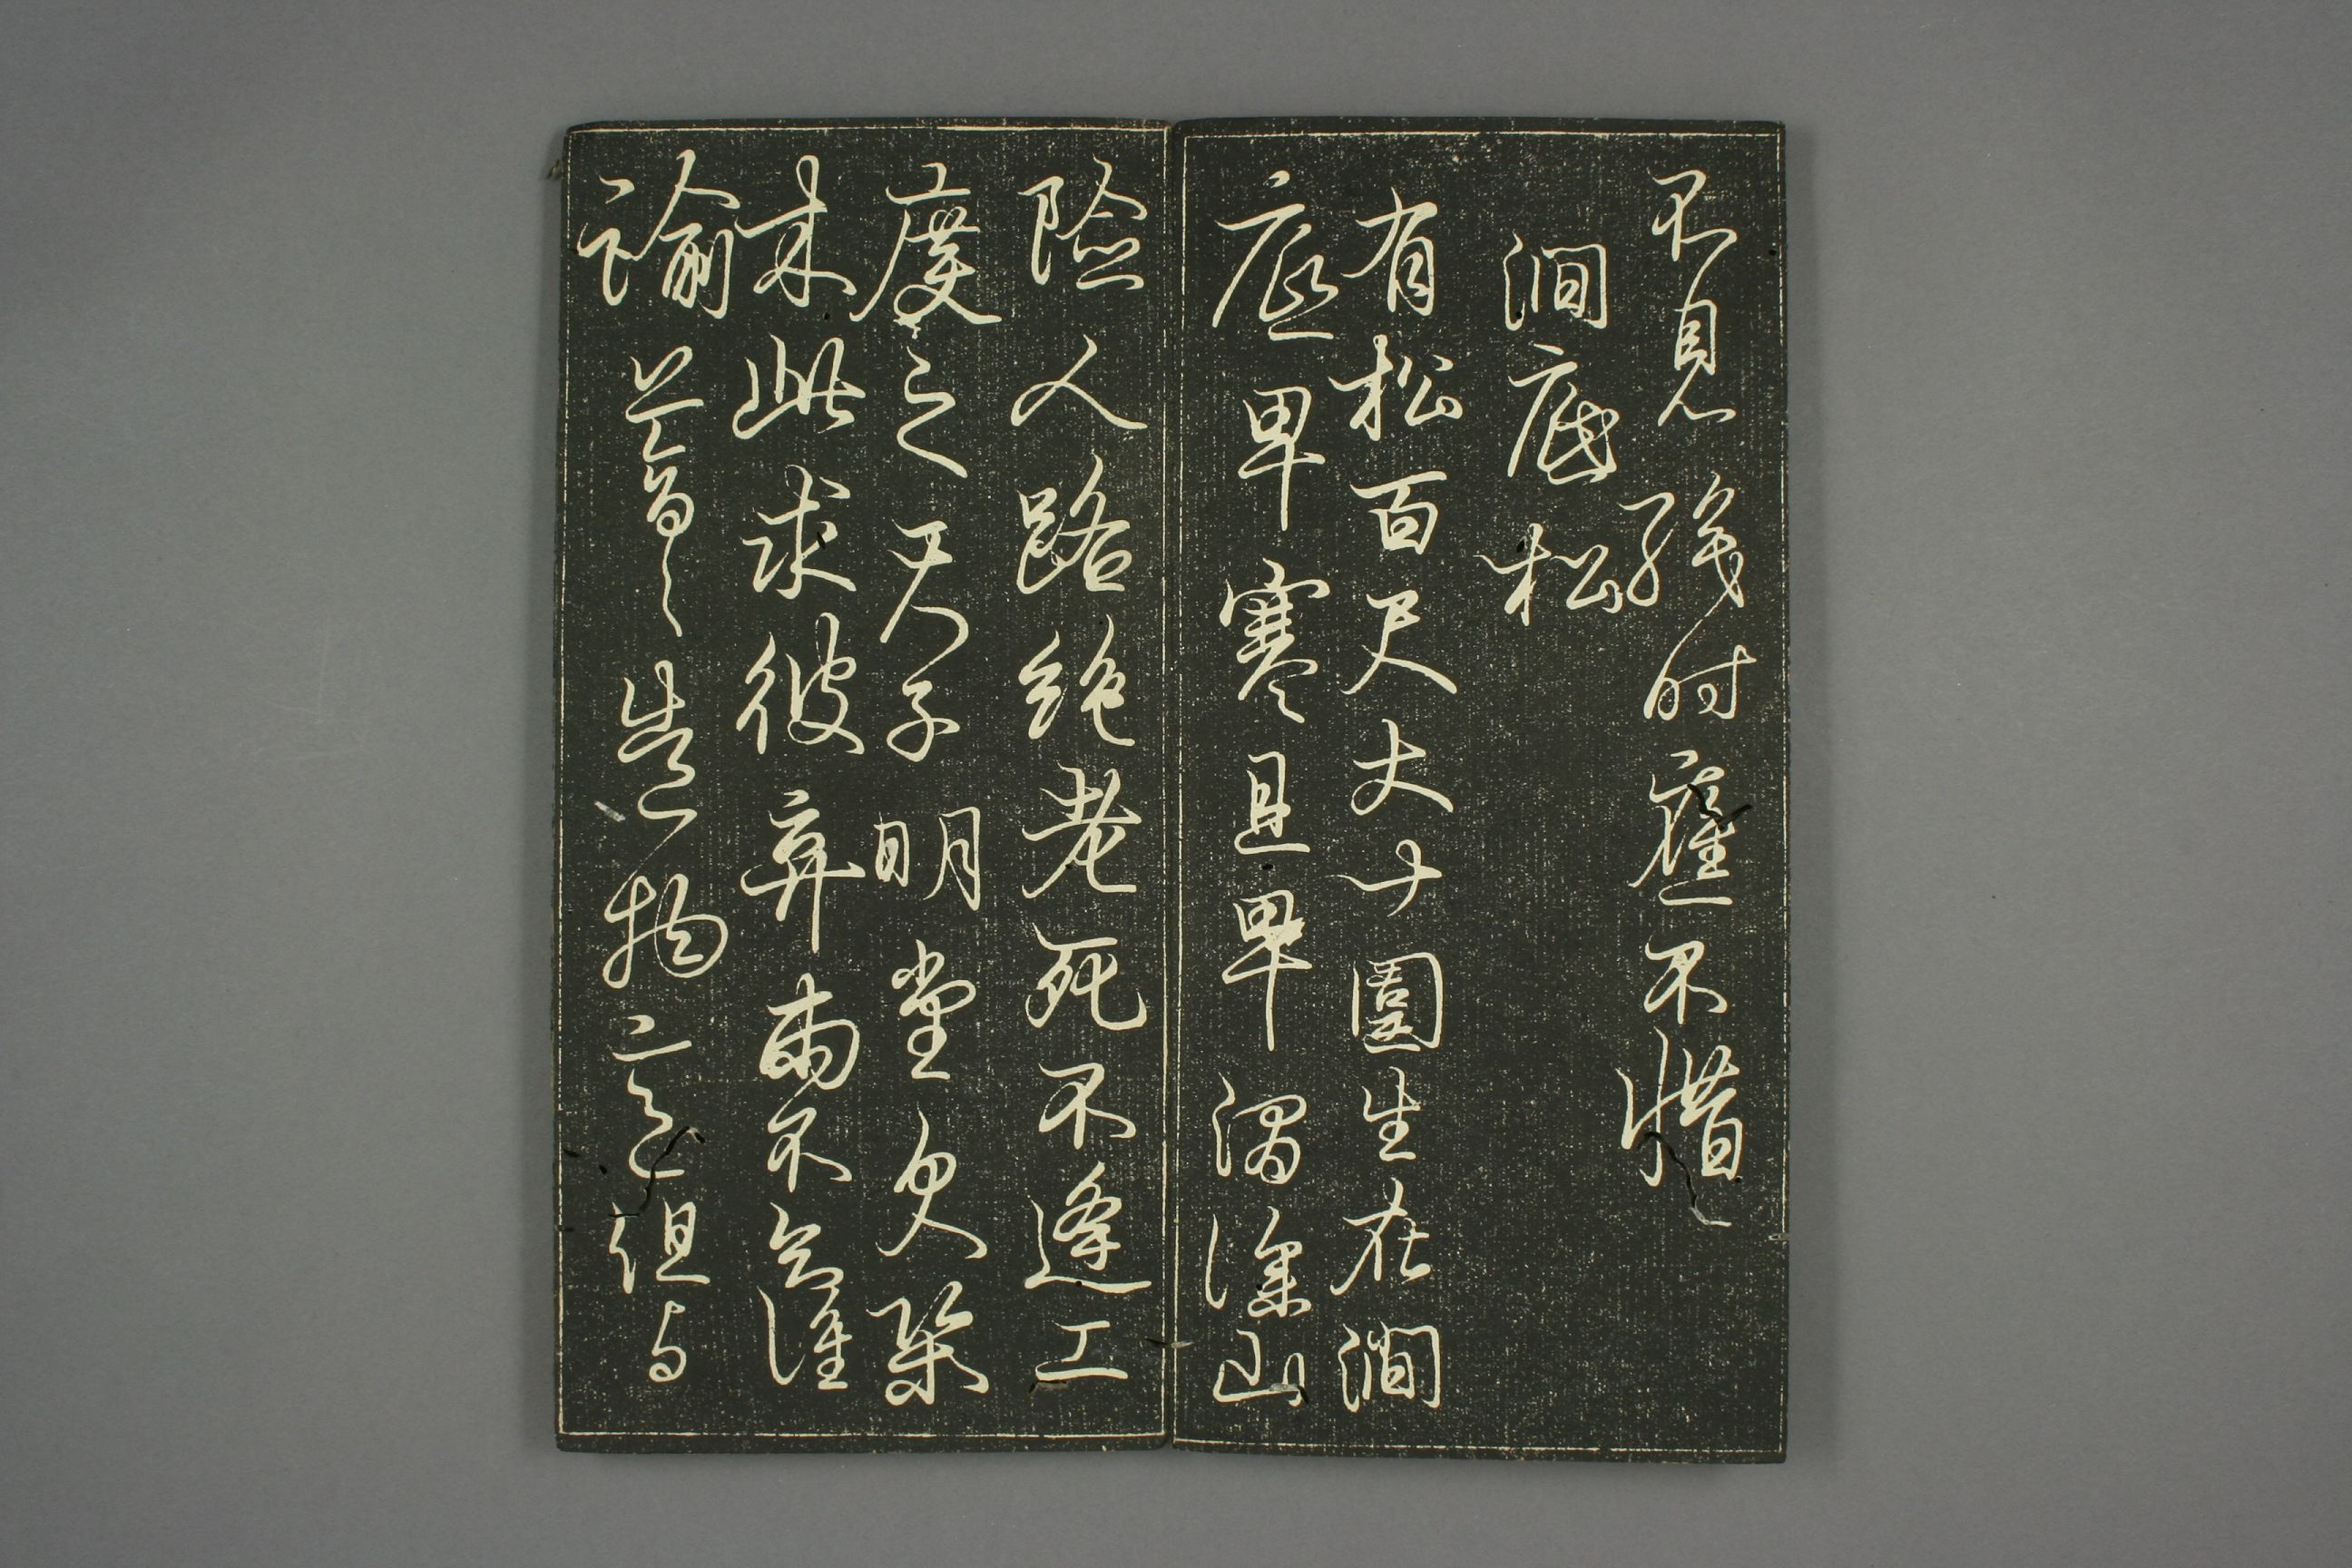 不見織時應不惜
澗底松
有松百尺大十圍生在澗
底卑寒且卑澗深山
險人路絕老死不逢工
度之天子明堂欠梁
木此求彼弃兩不知誰
諭蒼蒼造物意但與